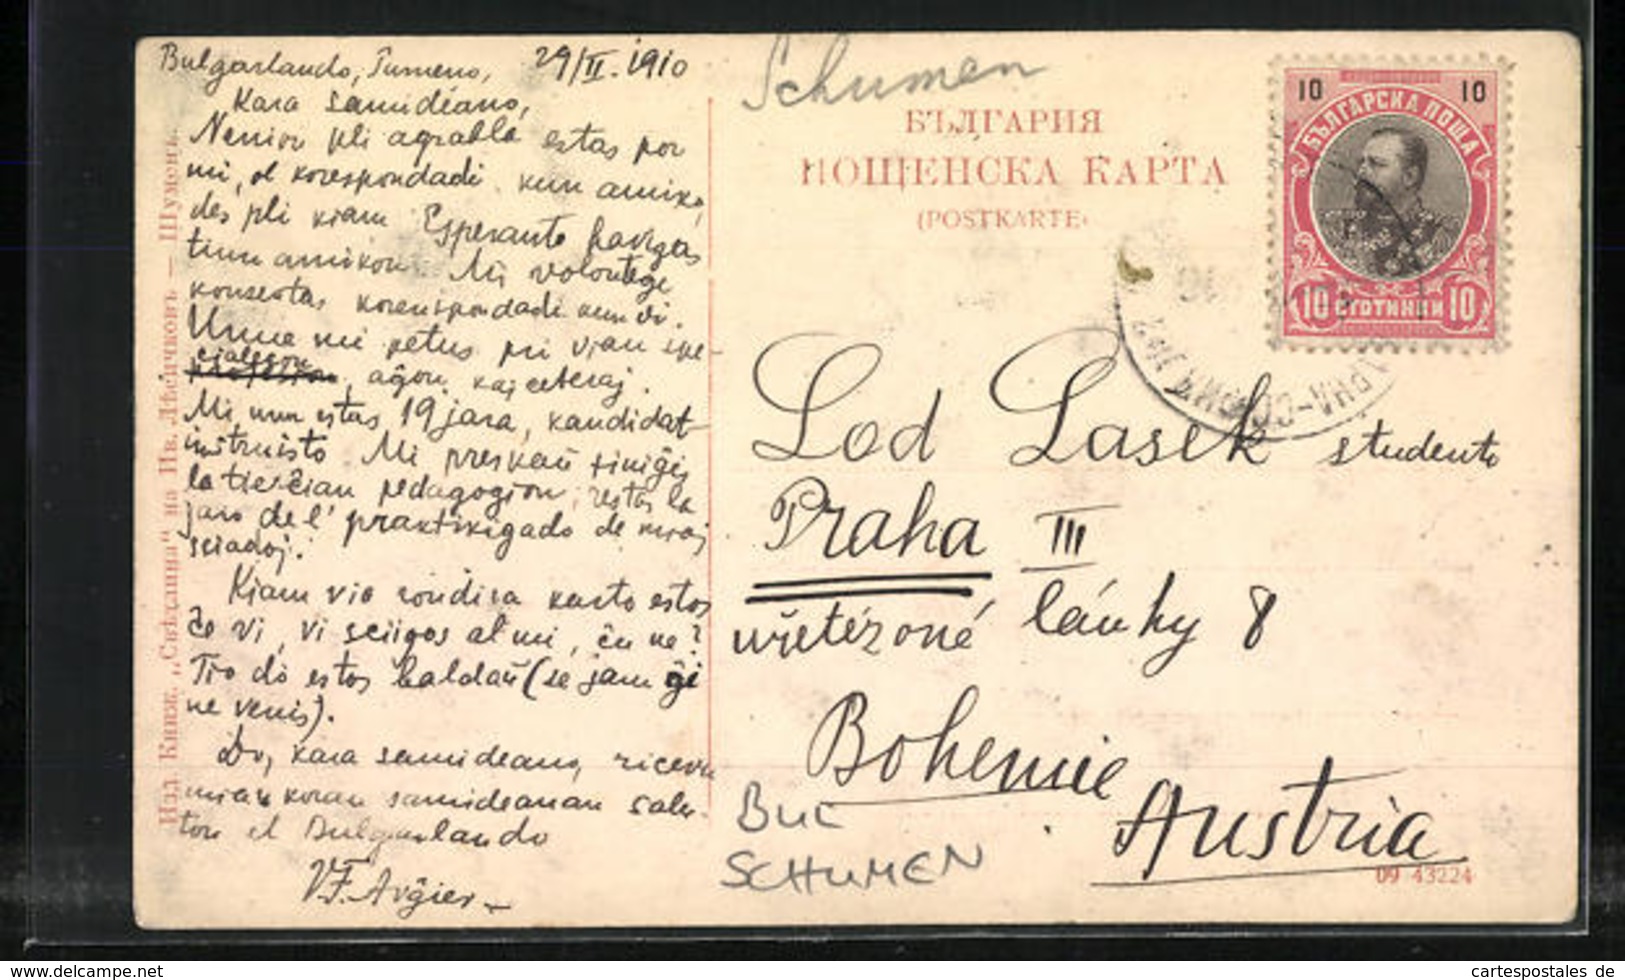 Bulgarlando, Ŝumeno, 29/II. 1910
Kara samideano,
Nenio pli agrabla estas por
mi, ol korespondadi kun amiko,
des pli kiam Esperanto havigas
tiun amikon. Mi volontege
konsentas korespondadi kun vi.
Unue mi petus pri vian spe-
cialecon, aĝon, kaj ceteraj.
Mi nun estas 19 jara, kandidat
instruisto. Mi preskaŭ finiĝis
la pedagogion, restas la
jaro de l' praktikigado de miaj
sciadoj.
Kiam via karto estos
ĉe vi, vi sciigos al mi, ĉu ne?
Tio do estos baldaŭ (se jam ĝi
ne venis).
Do, kara samideano, ricevu
mian koran samideanan salu-
ton el Bulgarlando
Изд. Книж. „Свѣтлина“ на Ив. Лѣсичковъ — Шуменъ.
Schumen
БЪЛГАРИЯ
ПОЩЕНСКА КАРТА
(POSTKARTE)
10 10
БЪЛГАРСКА ПОЩА
10 СТОТИНКИ 10
Lod Lasek studento
Praha III
lánky 8
Bohemie
Austria
BUL
SCHUMEN
09 43224
delcampe.net
cartespostales de